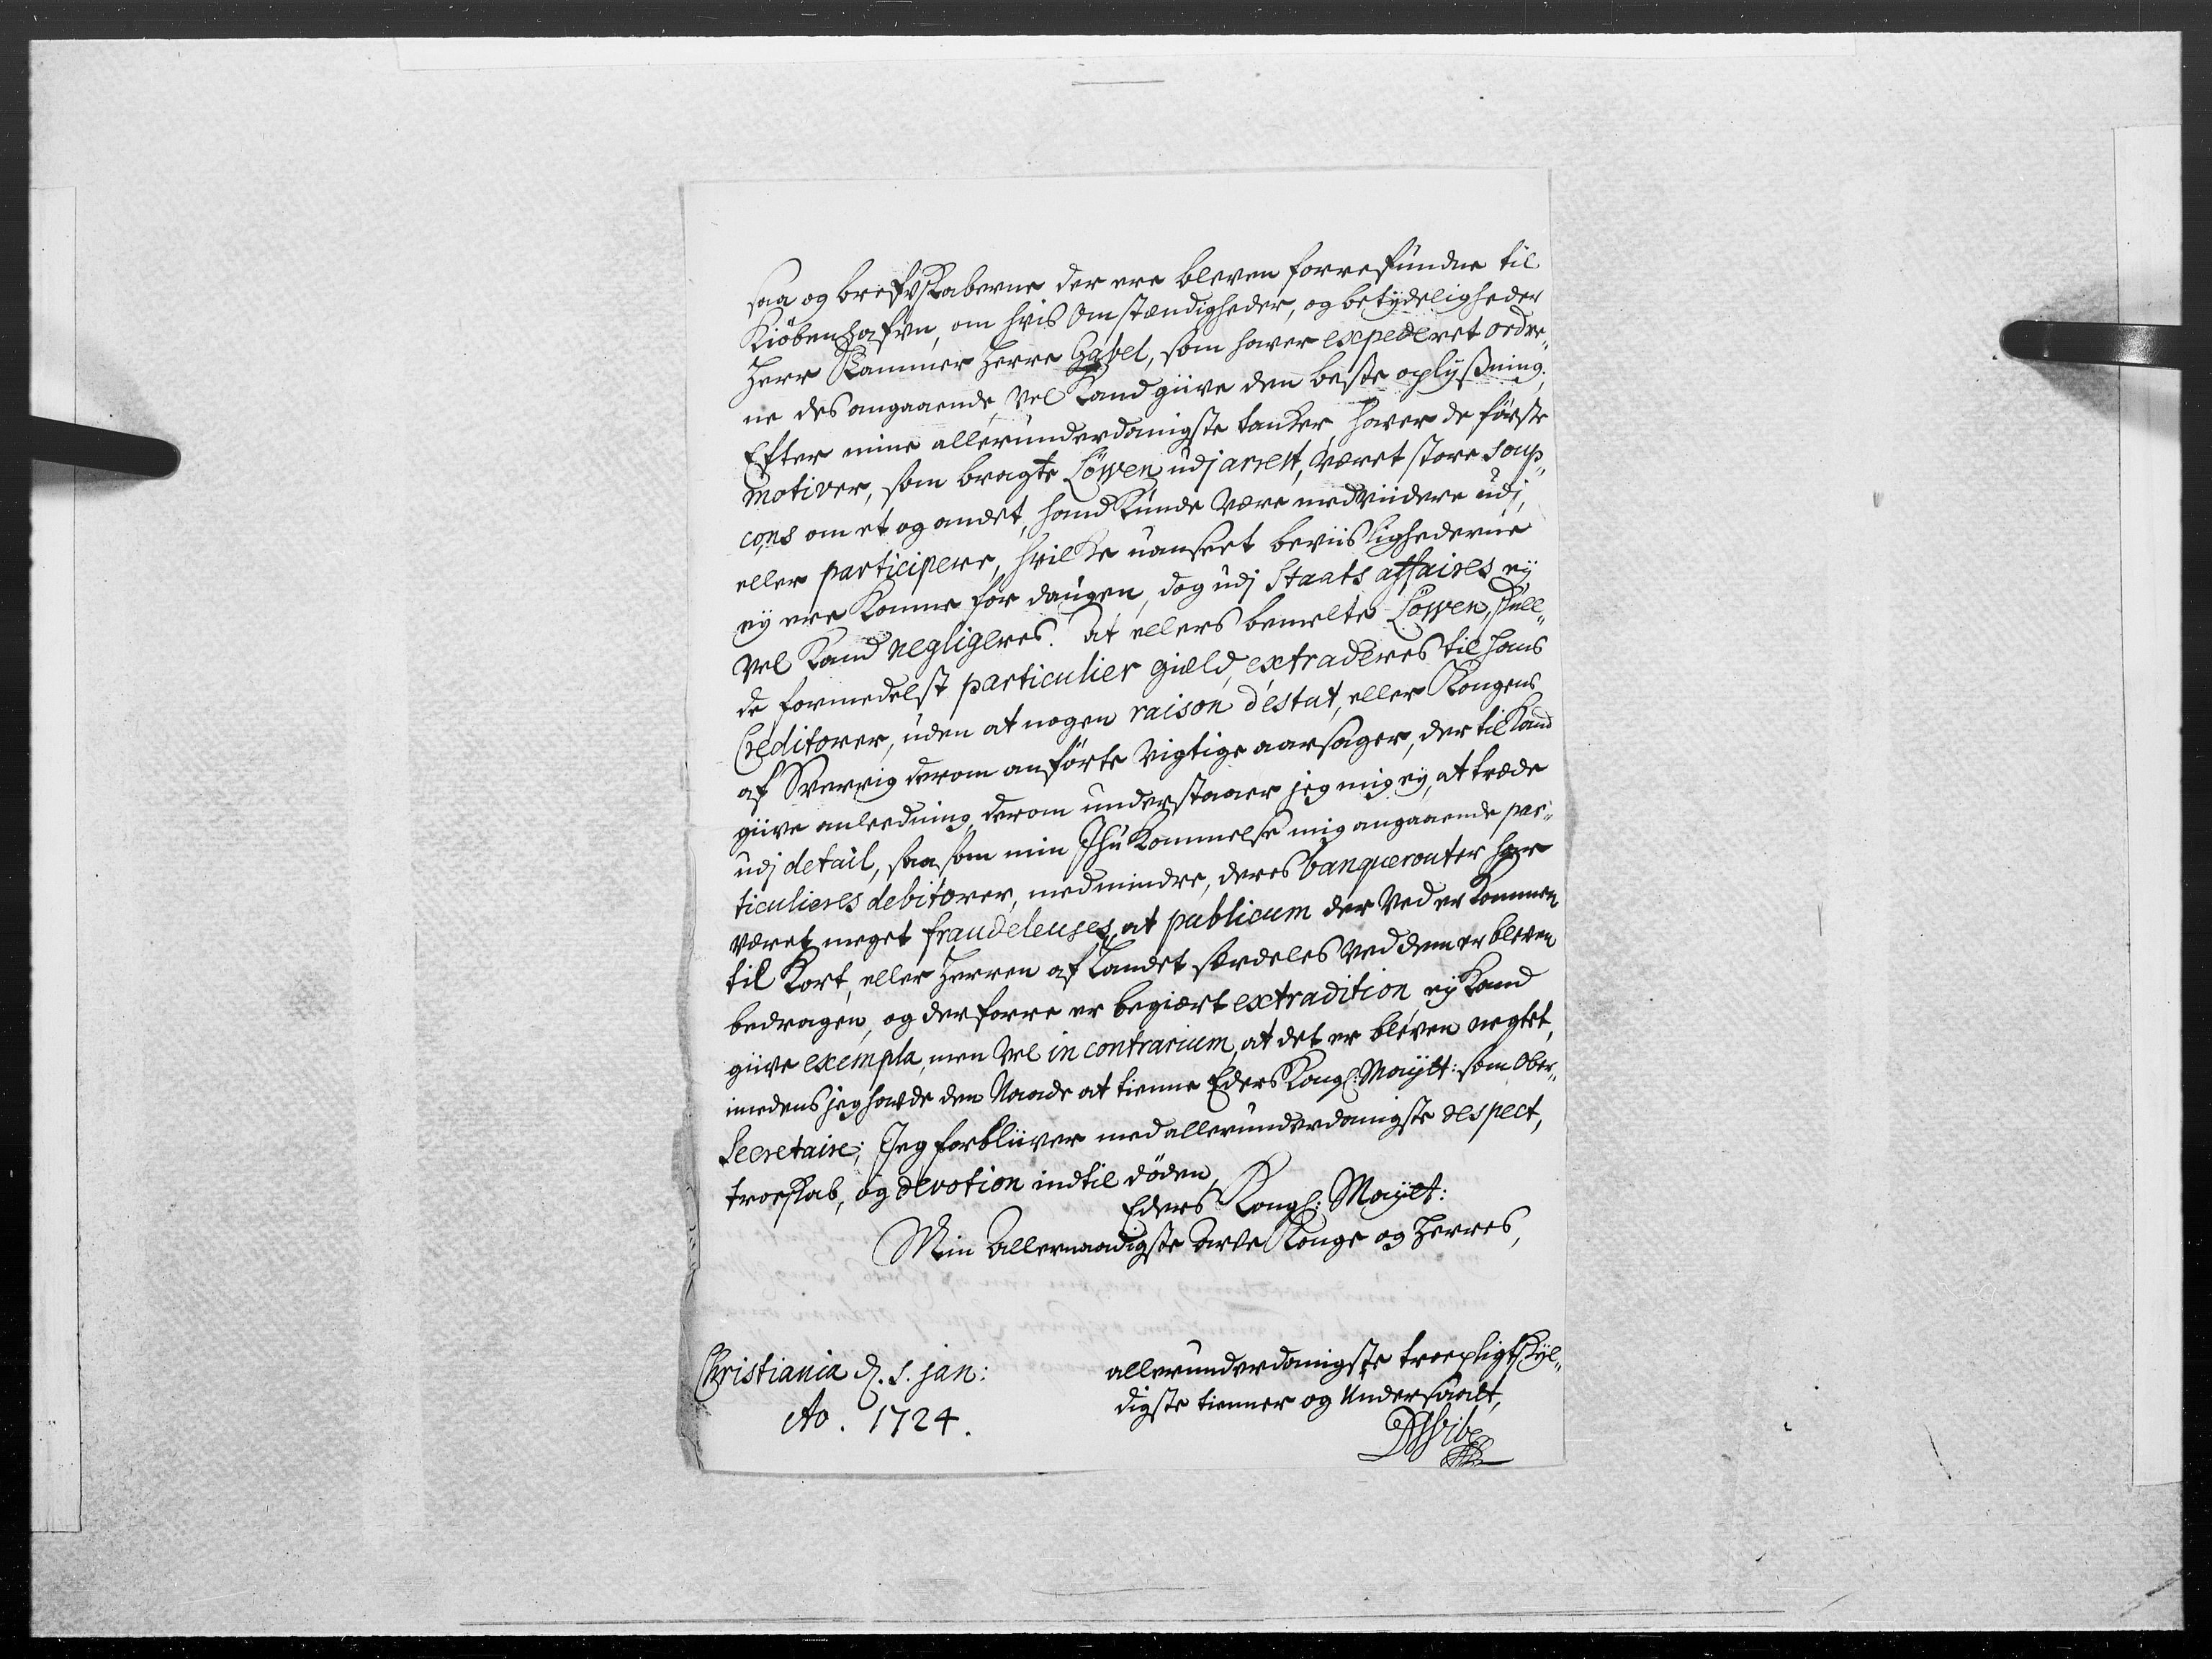 saa og brefskaberne der ere bleven forrefundne til
Kiöbenhafvn, om hvis Omstændigheder, og betÿdeligheder
Herr Kammer Herre Gabel, som haver expederet ordre„
ne des angaaende, vel Kand giive den beste oplÿsning.
Efter mine allerunderdanigste tanker haver de förste
motiver, som bragte Löwen udj arrest, været store soup„
cons om et og andet, hand Kunde være medviidere udj,
eller participere, hvilke uanseet beviisligHederne
eÿ ere Komne for daugen, dog udj Staats affaires eÿ
vel Kand negligeres. At ellers bemelte Löwen, skull„
de formedelst particulier giæld, extraderes til hans
Creditorer, uden at nogen raison d'estat, eller Kongens
af Sverrig derom anförte vigtige aarsager, der til Kand
giive anleedning, derom understaaer jeg mig eÿ, at træde
udj detail, saasom min IhuKommelse mig angaaende par„
ticulieres debitorer, medmindre, deres banquerouter har
været meget fraudeleuses, at publicum der ved er Kommen
til Kort, eller Herren af Landet særdeles ved dem er bleven
bedragen, og derforre er begiært extradition, eÿ Kand
giive exempla, men vel in contrarium, at det er bleven negtet,
imedens jeg havde den Naade at tienne Eders Kongl: Maÿtt: som Ober„
Secretaire; Jeg forbliiver med allerunderdanigste respect,
troeskab, og devotion indtil döden,
Eders Kongl: Maÿtt:
Min Allernaadigste Arve Konge og Herres,
Christiania d. 5. jan:
Ao. 1724.
allerunderdanigste troepligtskÿl„
digste tienner og Undersaatt,
DWibe